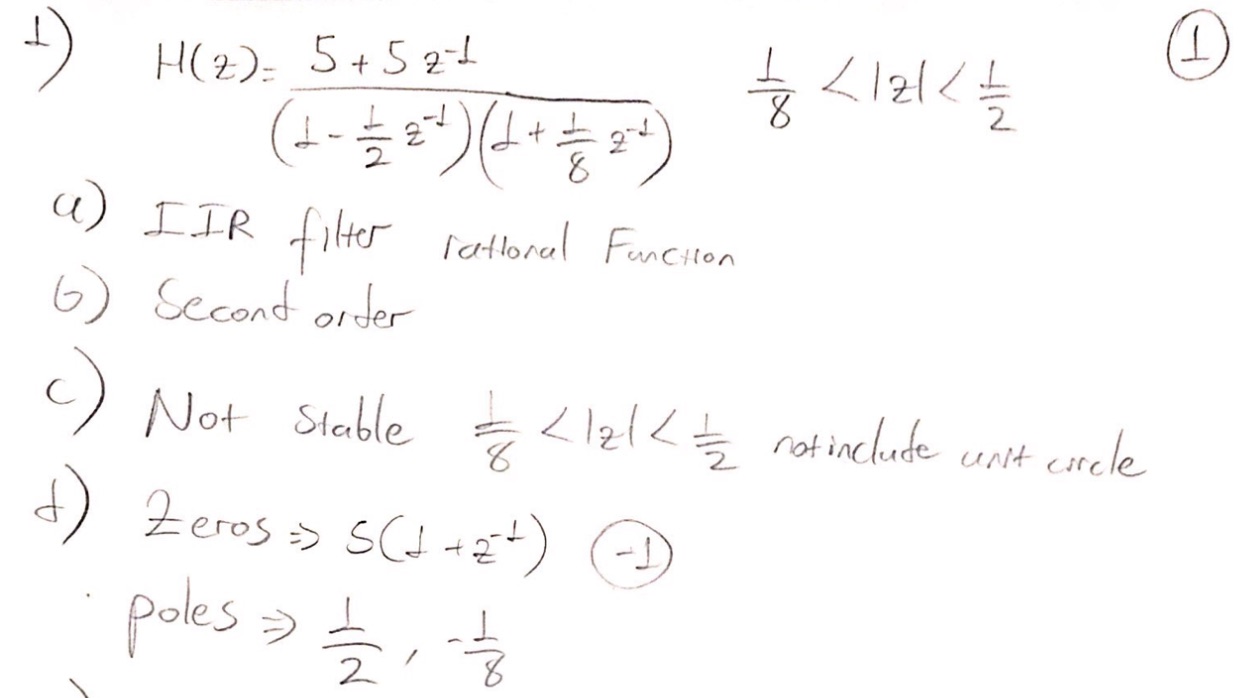 1) H(z) = (5 + 5z⁻¹) / ((1 - 1/2 z⁻¹)(1 + 1/8 z⁻¹)) 1/8 < |z| < 1/2 ①
a) IIR filter rational Function
b) Second order
c) Not Stable 1/8 < |z| < 1/2 not include unit circle
d) Zeros ⇒ 5(1 + z⁻¹) (-1)
poles ⇒ 1/2, -1/8